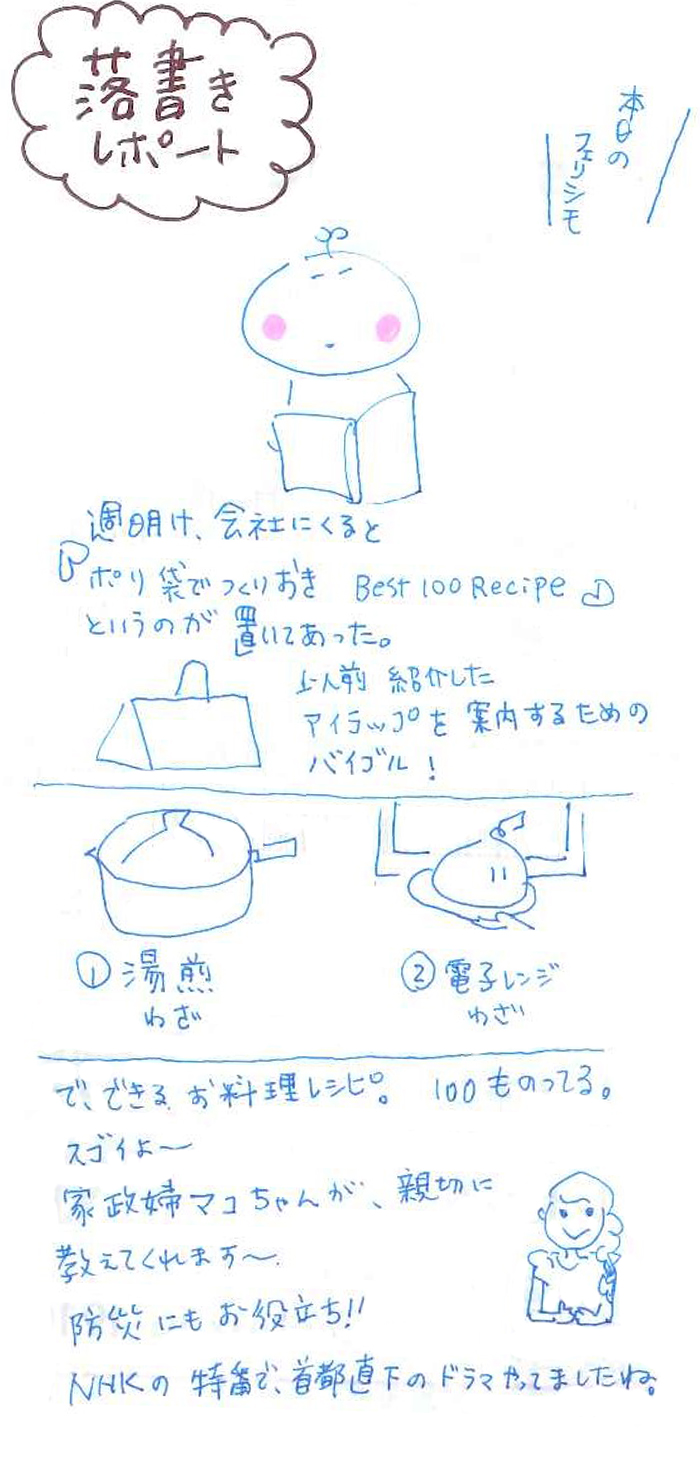 落書き
レポート
本日の
フェリシモ
週明け、会社にくると
ポリ袋でつくりおき Best 100 Recipe
というのが置いてあった。
以前 紹介した
アイラップを案内するための
バイブル!
① 湯煎
わざ
② 電子レンジ
わざ
で、できる お料理レシピ。 100ものってる。
スゴイよ〜
家政婦マコちゃんが、親切に
教えてくれます〜.
防災にもお役立ち!!
NHKの 特番で、首都直下のドラマやってましたね。